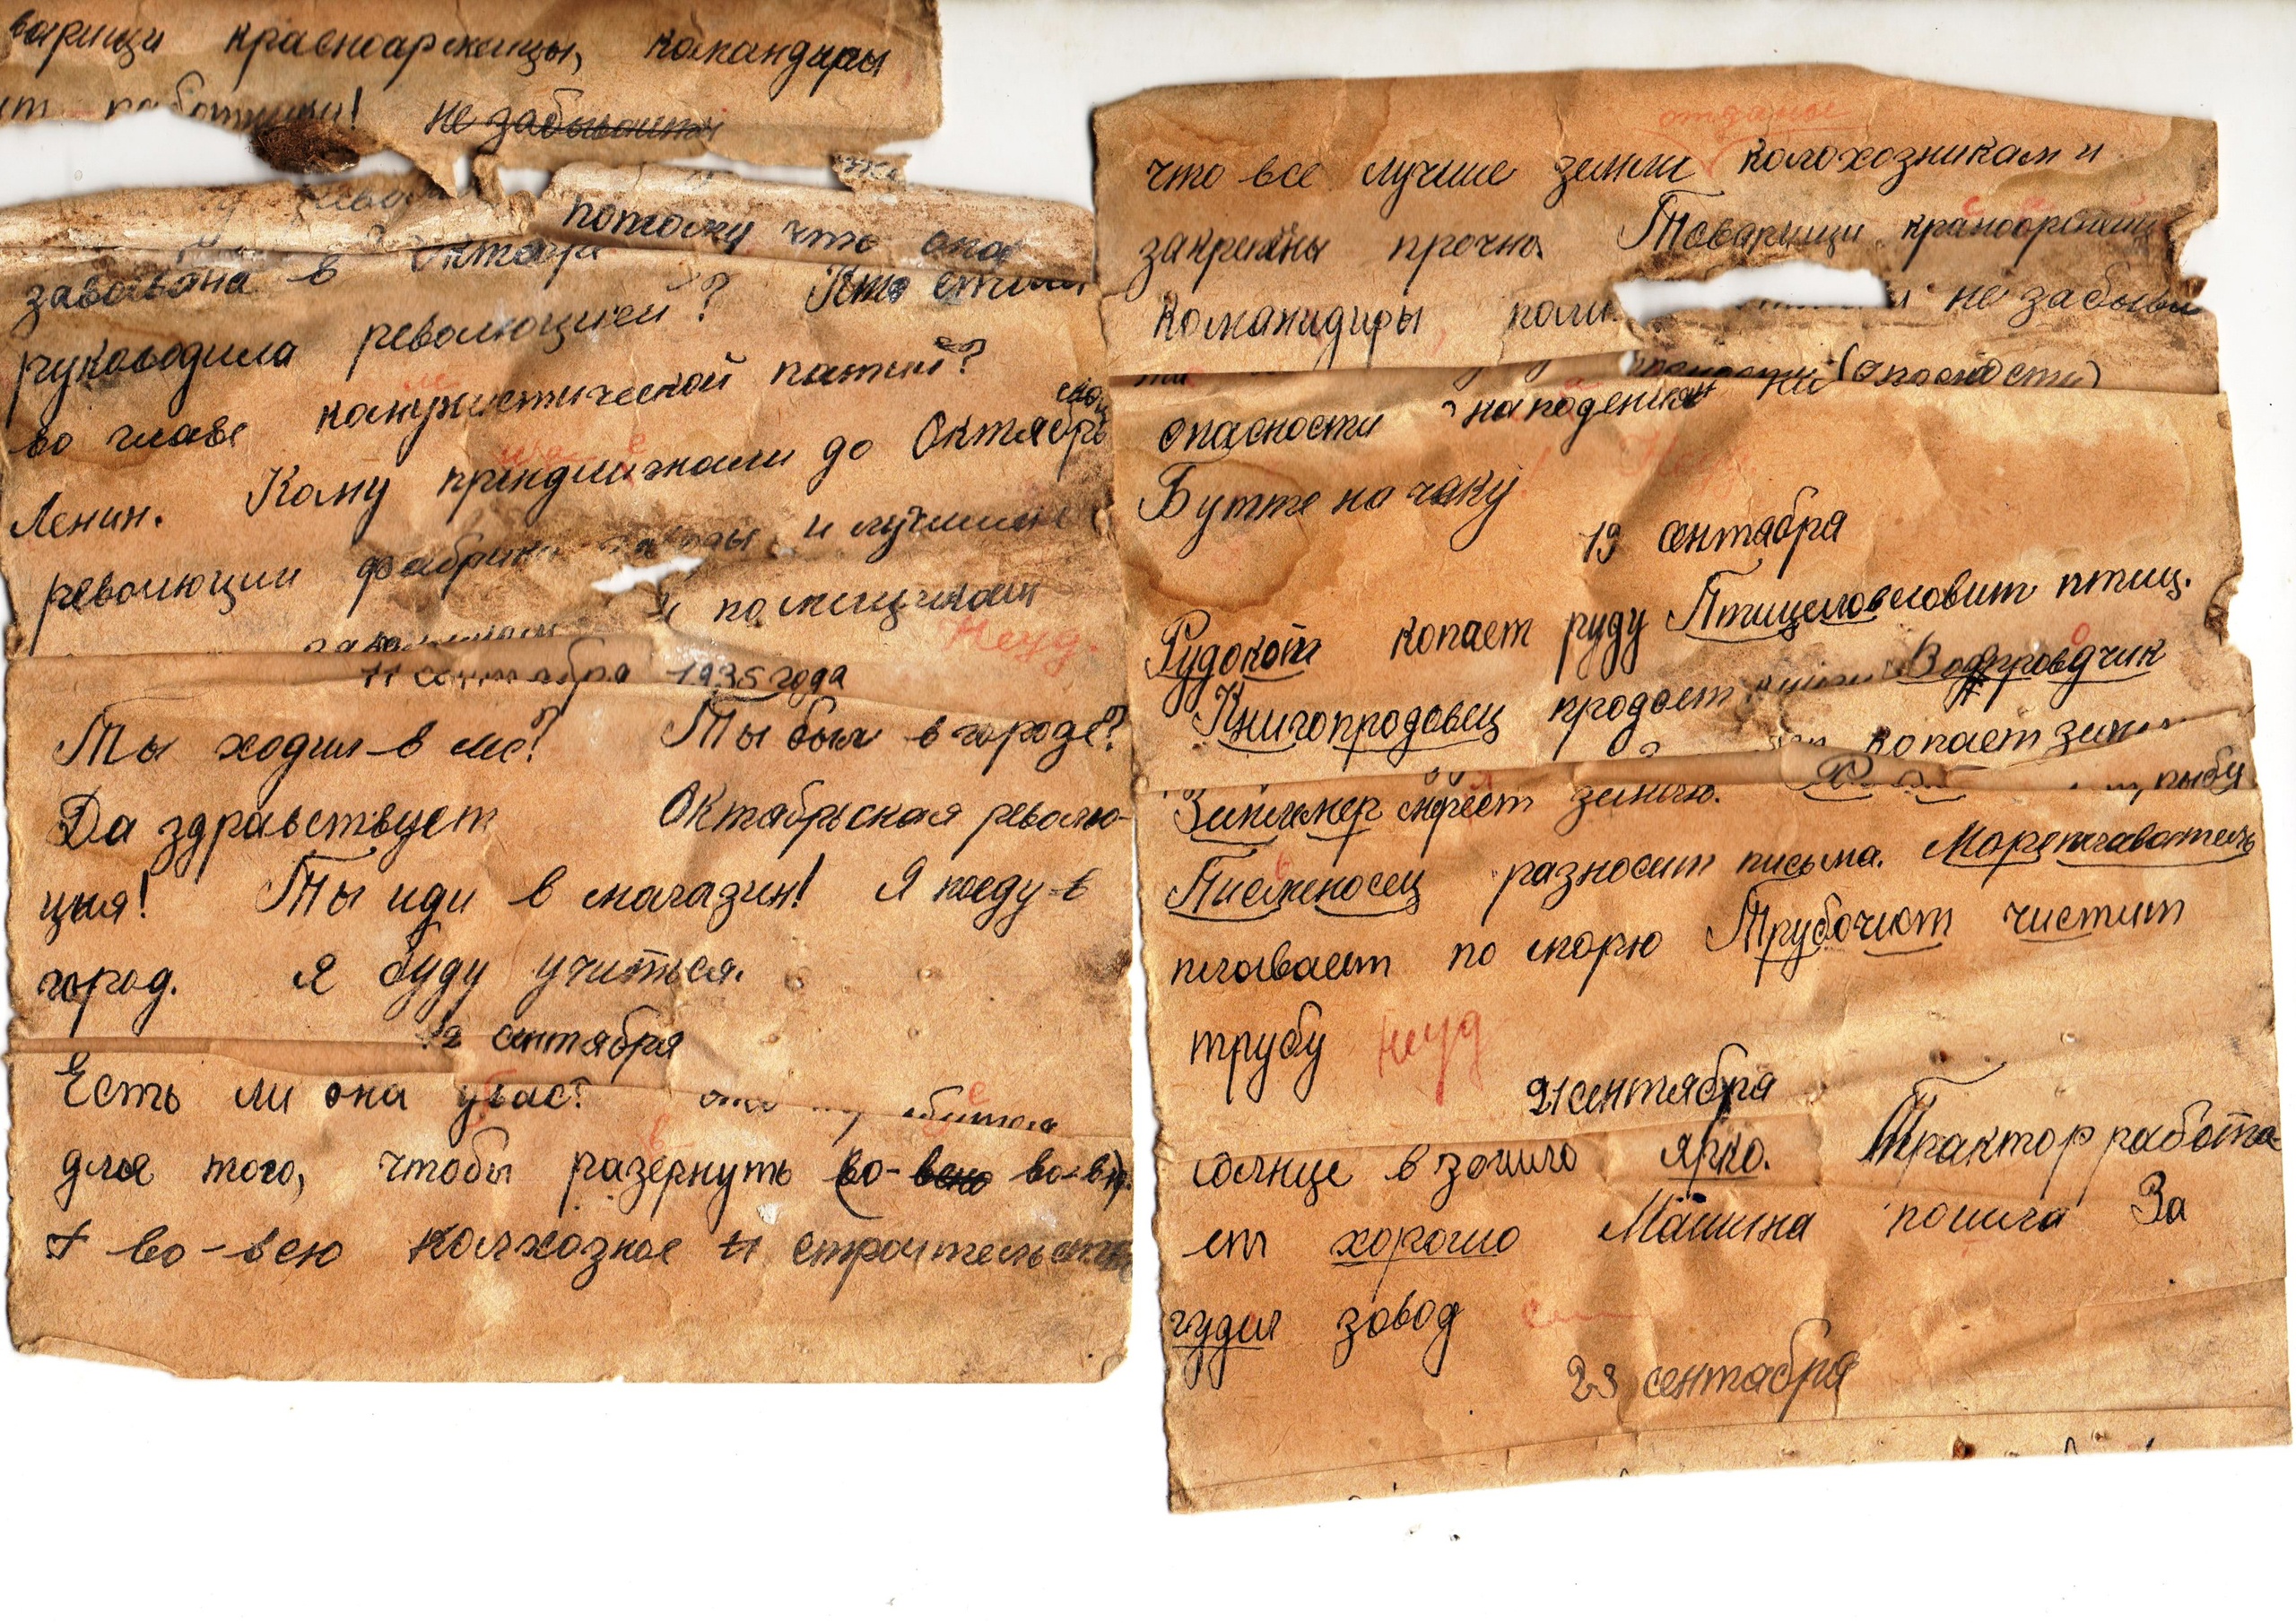 варищи красноармейцы, командиры
работники! не забывайте
потому что она
завоёвана в Октябре
руководила революцией? Кто стоит
во главе комунистической патии?
Ленин. Кому прендлижали до Октябрь
ской
революции фабрики заводы и лучшие
и помещикам
Неуд.
11 сентября 1935 года
Ты ходил в лес? Ты был в городе?
Да здравствует Октябрьская револю-
ция! Ты иди в магазин! Я поеду в
город. Я буду учиться.
12 сентября
Есть ли она у вас?
для того, чтобы разернуть (во-всю во-вю)
во-всю колхозное строительство
отданы
что все лучшие земли колохозникам и
закреплены прочно. Товарищи краноармейцы
Команидиры не забыва
(опасности)
опасности нападения
Бутте на чаку!
Неуд.
19 сентября
Рудокоп копает руду Птицелов ловит птиц.
Книгопродавец продает книги Водпроводчик
копает
Землемер мереет землю. рыбу
Писменосец разносит письма. Мореплаватель
плавает по морю Трубочист чистит
трубу Неуд
21 сентября
Солнце взошло ярко. Трактор работа
ет хорошо Машина пошла За
гудел завод
23 сентября